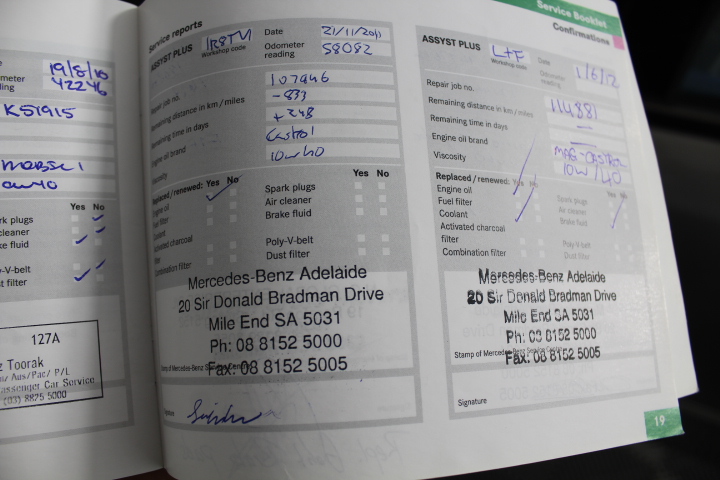 19/8/10
42246
K51915
Yes No
127A
Toorak
Aus/Pac/ P/L
assenger Car Service
(03) 8825 5000
Service reports
ASSYST PLUS
Workshop code
Date
21/11/2011
Odometer
reading
58082
Repair job no.
107946
Remaining distance in km / miles
-833
Remaining time in days
+248
Engine oil brand
Castrol
Viscosity
10w40
Replaced/renewed: Yes No
Engine oil
Fuel filter
Coolant
Activated charcoal
filter
Combination filter
Spark plugs
Yes No
Air cleaner
Brake fluid
Poly-V-belt
Dust filter
Mercedes-Benz Adelaide
20 Sir Donald Bradman Drive
Mile End SA 5031
Ph: 08 8152 5000
Fax: 08 8152 5005
Service Booklet
Confirmations
ASSYST PLUS
L+F
Workshop code
Date
Odometer
reading
1/6/12
Repair job no.
114881
Remaining distance in km / miles
Remaining time in days
Engine oil brand
Viscosity
10w/40
Replaced/renewed: Yes No
Engine oil
Fuel filter
Coolant
Activated charcoal
filter
Combination filter
Yes No
Spark plugs
Air cleaner
Brake fluid
Poly-V-belt
Dust filter
Mercedes-Benz Adelaide
20 Sir Donald Bradman Drive
Mile End SA 5031
Ph: 08 8152 5000
Stamp of Mercedes-Benz Service Centre
Fax: 08 8152 5005
Signature
19